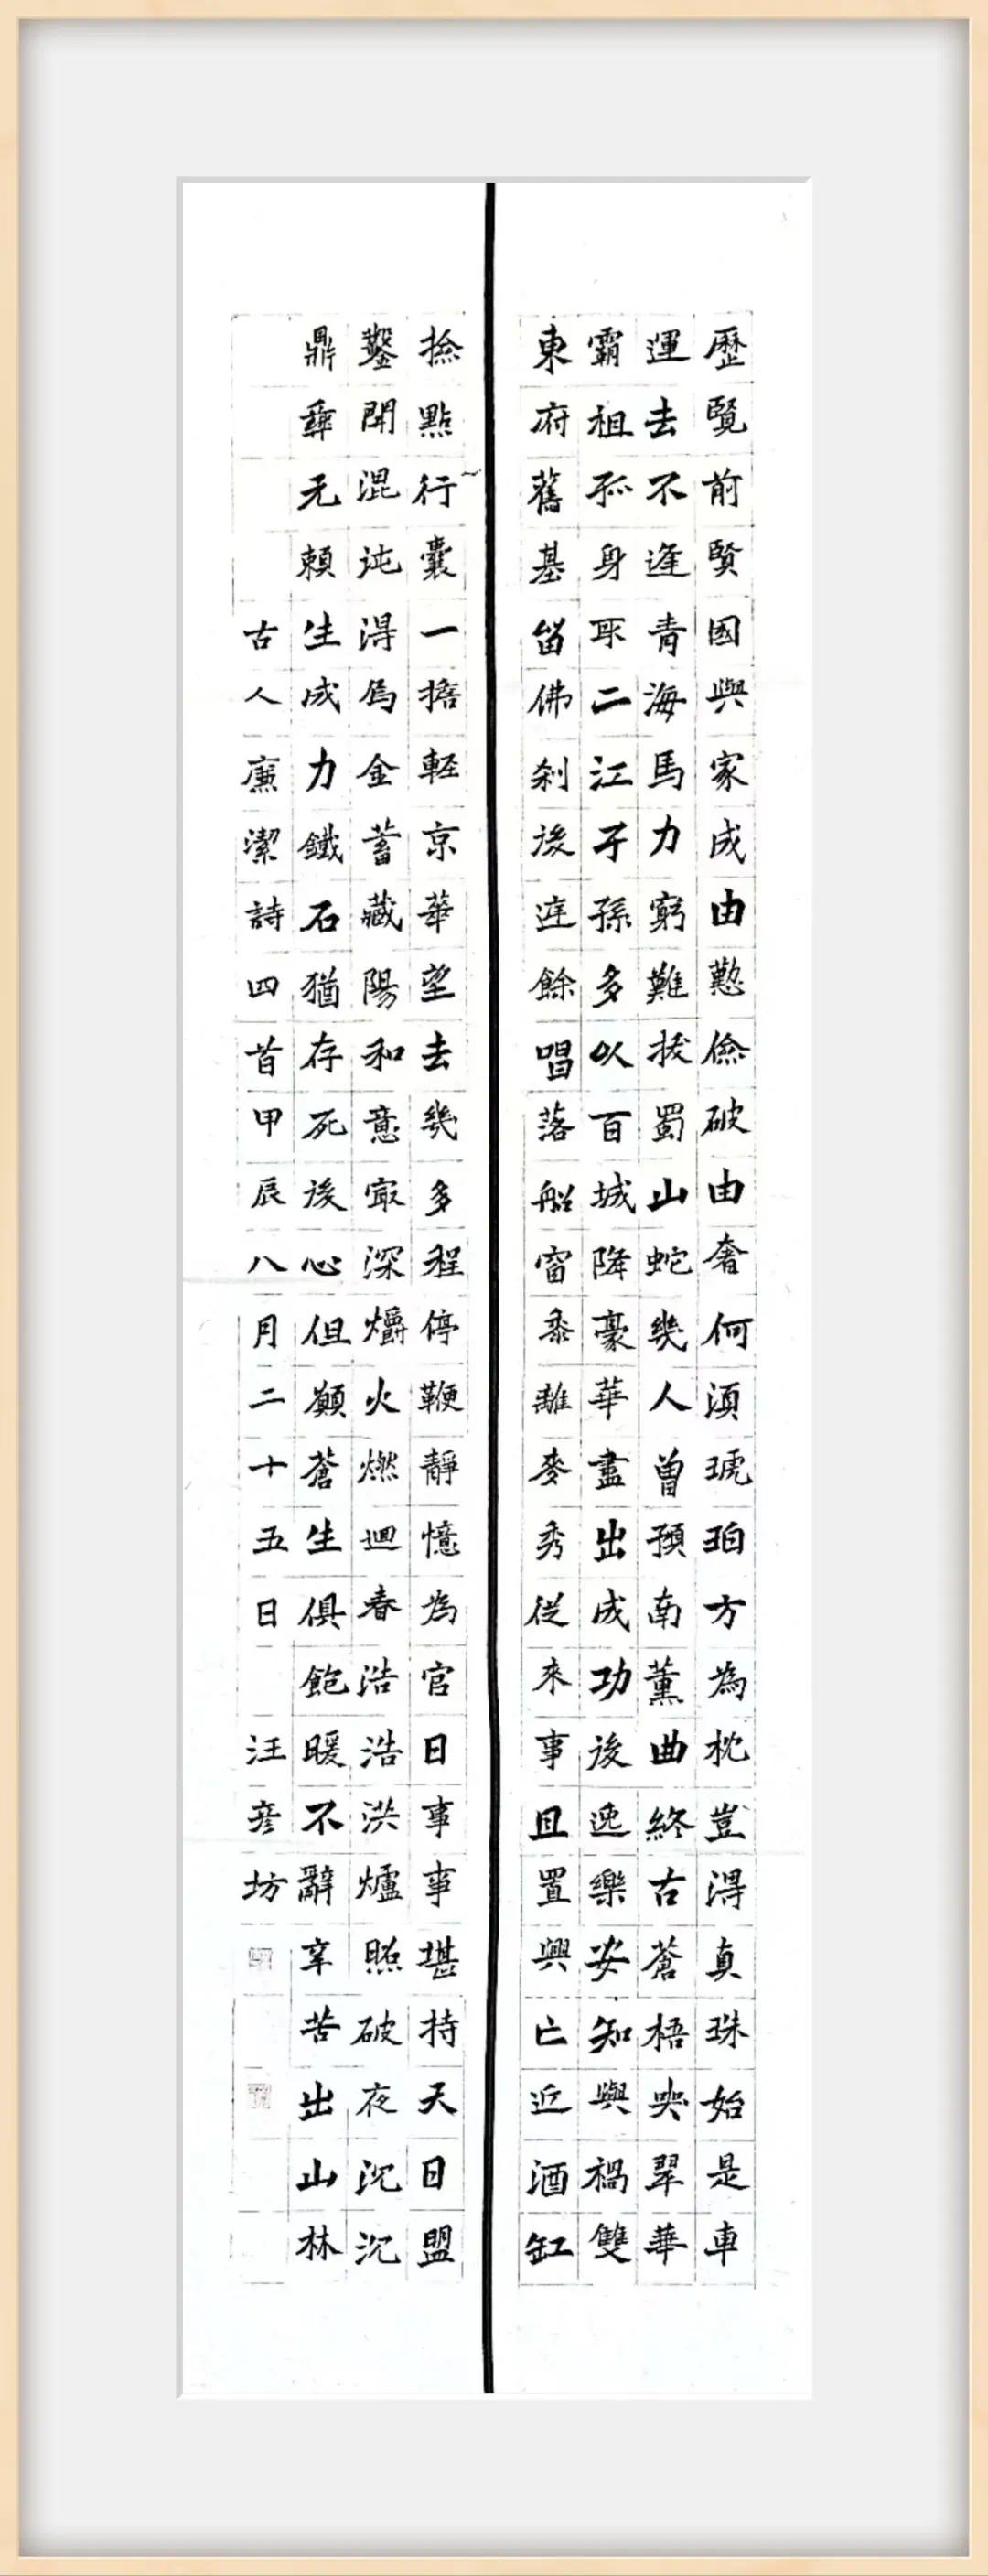 歷覽前賢國與家成由懃儉破由奢何須琥珀方為枕豈得真珠始是車
運去不逢青海馬力窮難拔蜀山蛇幾人曾預南薰曲終古蒼梧哭翠華
霸祖孤身取二江子孫多以百城降豪華盡出成功後逸樂安知與禍雙
東府舊基留佛刹後庭餘唱落船窗黍離麥秀從來事且置興亡近酒缸
撿點行囊一擔輕京華望去幾多程停鞭靜憶為官日事事堪持天日盟
鑿開混沌得烏金蓄藏陽和意冣深爝火燃迴春浩浩洪爐照破夜沉沉
鼎彝元賴生成力鐵石猶存死後心但願蒼生俱飽暖不辭辛苦出山林
古人廉潔詩四首甲辰八月二十五日 汪彥坊